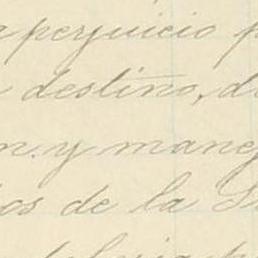 perjuicio p
destino, d
n. y mane
os de la